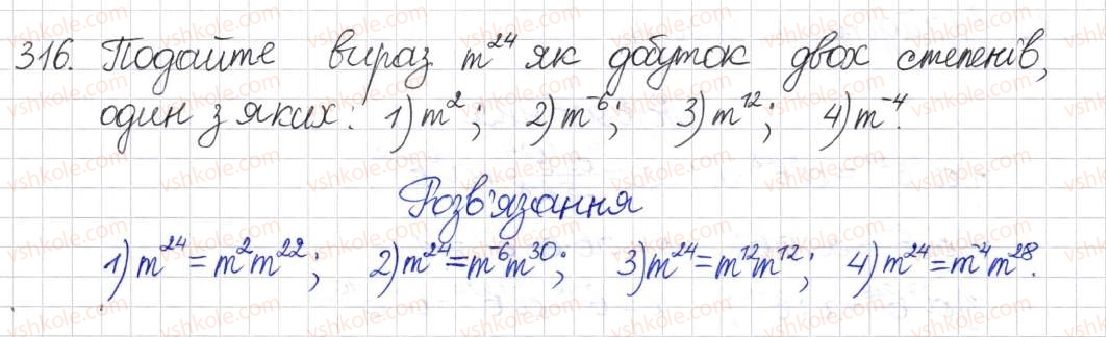 316. Подайте вираз m²⁴ як добуток двох степенів,
один з яких: 1) m²; 2) m⁻⁶; 3) m¹²; 4) m⁻⁴.
Розв'язання
1) m²⁴ = m² m²²; 2) m²⁴ = m⁻⁶ m³⁰; 3) m²⁴ = m¹² m¹²; 4) m²⁴ = m⁻⁴ m²⁸.